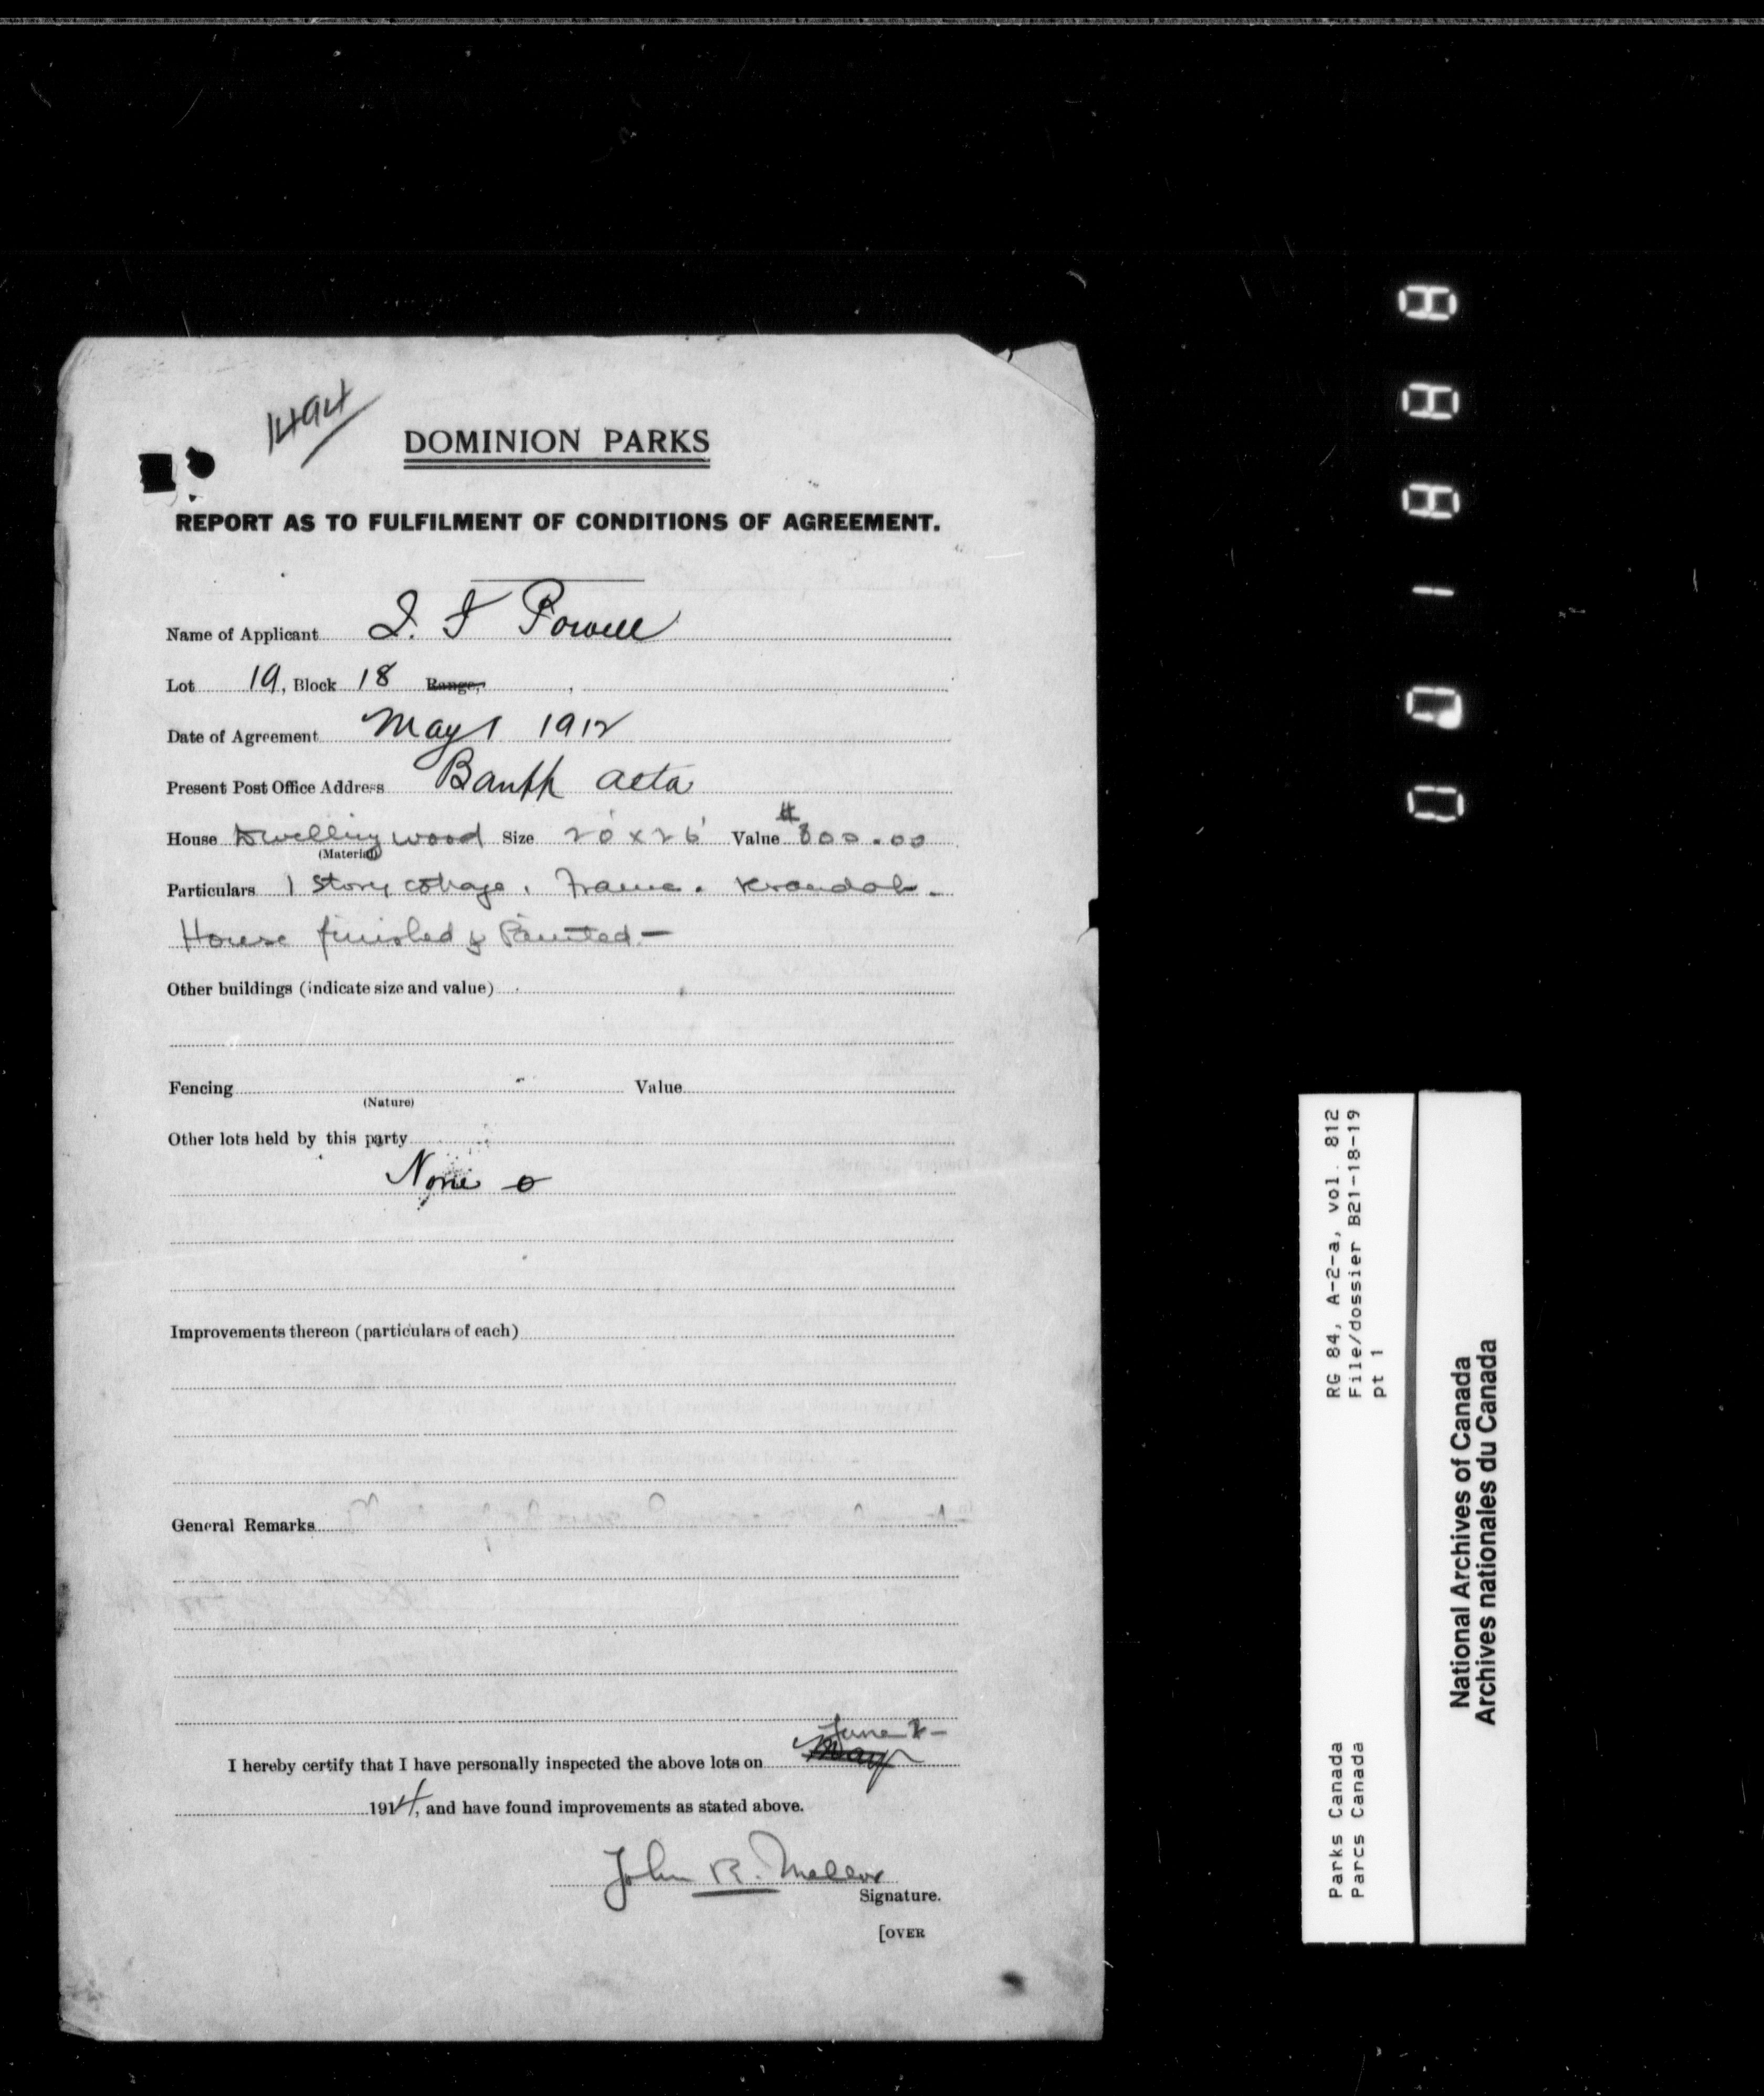 1494
DOMINION PARKS
REPORT AS TO FULFILMENT OF CONDITIONS OF AGREEMENT.
Name of Applicant J. F Powell
Lot 19, Block 18 Range,
Date of Agreement May 1 1912
Present Post Office Address Banff Alta
House Dwelling wood Size 20' x 26' Value $800.00
(Material)
Particulars 1 Story cottage. Frame.
House finished & Painted -
Other buildings (indicate size and value)
Fencing Value
(Nature)
Other lots held by this party
None
Improvements thereon (particulars of each)
General Remarks
June 2 -
I hereby certify that I have personally inspected the above lots on May
1914, and have found improvements as stated above.
John R. Mellor
Signature.
[OVER
RG 84, A-2-a, vol. 812
File/dossier B21-18-19
pt 1
Parks Canada
Parcs Canada
National Archives of Canada
Archives nationales du Canada